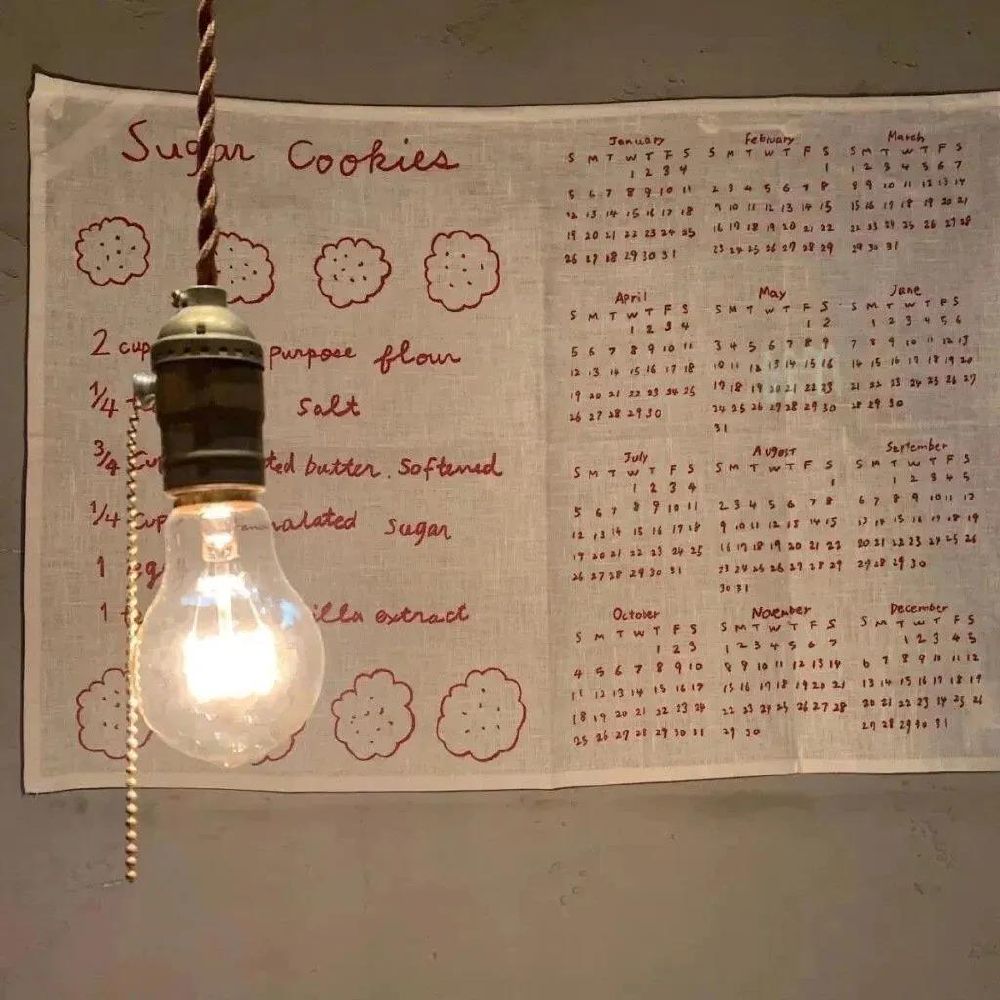 Sugar Cookies
2 cup purpose flour
1/4 Salt
3/4 Cu ted butter. Softened
1/4 Cup anulated Sugar
1 eg
1 t illa extract
January
S M T W T F S
1 2 3 4
5 6 7 8 9 10 11
12 13 14 15 16 17 18
19 20 21 22 23 24 25
26 27 28 29 30 31
February
S M T W T F S
1
2 3 4 5 6 7 8
9 10 11 12 13 14 15
16 17 18 19 20 21 22
23 24 25 26 27 28 29
March
S M T W T F S
1 2 3 4 5 6 7
8 9 10 11 12 13 14
15 16 17 18 19 20 21
22 23 24 25 26 27 28
29 30 31
April
S M T W T F S
1 2 3 4
5 6 7 8 9 10 11
12 13 14 15 16 17 18
19 20 21 22 23 24 25
26 27 28 29 30
May
S M T W T F S
1 2
3 4 5 6 7 8 9
10 11 12 13 14 15 16
17 18 19 20 21 22 23
24 25 26 27 28 29 30
31
June
S M T W T F S
1 2 3 4 5 6
7 8 9 10 11 12 13
14 15 16 17 18 19 20
21 22 23 24 25 26 27
28 29 30
July
S M T W T F S
1 2 3 4
5 6 7 8 9 10 11
12 13 14 15 16 17 18
19 20 21 22 23 24 25
26 27 28 29 30 31
August
S M T W T F S
1
2 3 4 5 6 7 8
9 10 11 12 13 14 15
16 17 18 19 20 21 22
23 24 25 26 27 28 29
30 31
September
S M T W T F S
1 2 3 4 5
6 7 8 9 10 11 12
13 14 15 16 17 18 19
20 21 22 23 24 25 26
27 28 29 30
October
S M T W T F S
1 2 3
4 5 6 7 8 9 10
11 12 13 14 15 16 17
18 19 20 21 22 23 24
25 26 27 28 29 30 31
November
S M T W T F S
1 2 3 4 5 6 7
8 9 10 11 12 13 14
15 16 17 18 19 20 21
22 23 24 25 26 27 28
29 30
December
S M T W T F S
1 2 3 4 5
6 7 8 9 10 11 12
13 14 15 16 17 18 19
20 21 22 23 24 25 26
27 28 29 30 31